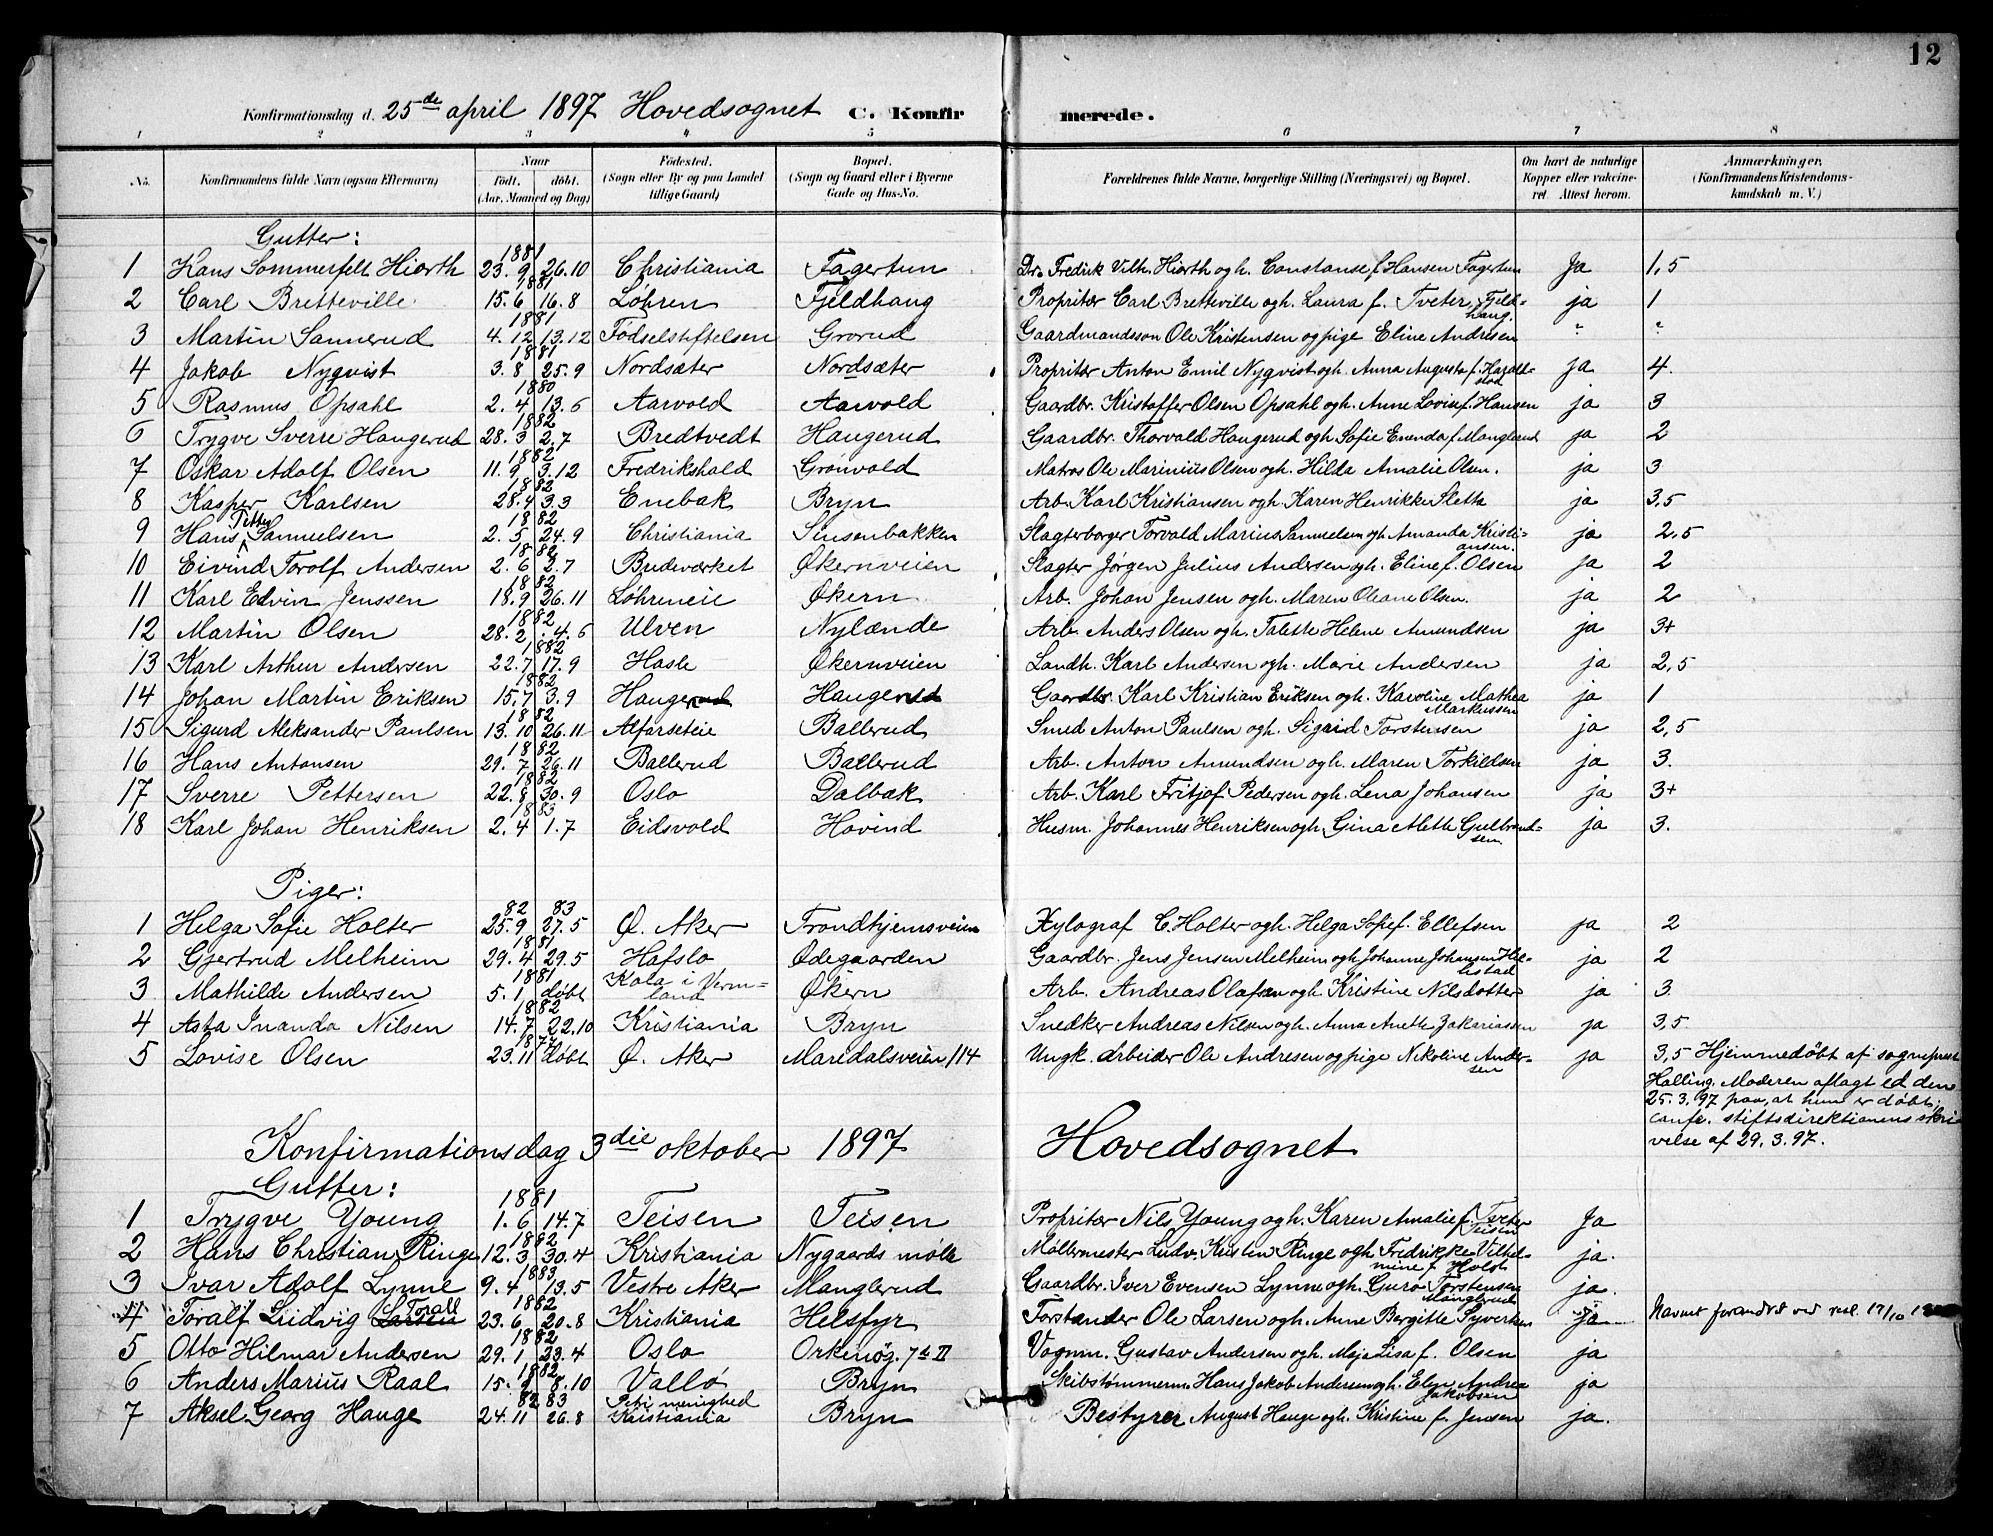 12
Konfirmationsdag d. 25de april 1897 Hovedsognet C. Konfirmerede.
1 2 3 4 5 6 7 8
No. Konfirmandens fulde Navn (ogsaa Efternavn) Naar Født. døbt. (Aar. Maaned og Dag) Fødested. (Sogn eller By og paa Landet tillige Gaard) Bopæl. (Sogn og Gaard eller i Byerne Gade og Hus-No. Forældrenes fulde Navne, borgerlige Stilling (Næringsvei) og Bopæl. Om havt de naturlige Kopper eller vakcineret. Attest herom. Anmærkninger. (Konfirmandens Kristendomskundskab m. V.)
Gutter:
1 Hans Sommerfelt Hiorth 1881 23.9 26.10 Christiania Fagertun Dr. Fredrik Vilh. Hiorth og h. Constanse f. Hansen Fagertun Ja 1,5
2 Carl Bretteville 1881 15.6 16.8 Løhren Fjeldhaug Propritær Carl Bretteville og h. Laura f. Tveter, Fjeldhaug. ja 1
3 Martin Sannerud 1881 4.12 13.12 Fødselstiftelsen Grorud Gaardmandssøn Ole Kristensen og pige Eline Andresen " "
4 Jakob Nyqvist 1881 3.8 25.9 Nordsæter Nordsæter Propritær Anton Emil Nyqvist og h. Anna Augusta f. Haraldstad ja 4.
5 Rasmus Opsahl 1880 2.4 13.6 Aarvold Aarvold Gaardbr. Kristoffer Olsen Opsahl og h. Anne Lovise f. Hansen ja 3
6 Trygve Sverre Haugerud 1882 28.3 2.7 Bredtvedt Haugerud Gaardbr. Thorvald Haugerud og h. Sofie Enenda f. Manglerud ja 2
7 Oskar Adolf Olsen 1882 11.9 3.12 Fredrikshald Grønvold Matros Ole Marinius Olsen og h. Hilda Amalie Olsen. ja 3
8 Kasper Karlsen 1882 28.4 3.3 Enebak Bryn Arb. Karl Kristiansen og h. Karen Henrikke Sletta ja 3,5
9 Hans Petter Samuelsen 1882 2.5 24.9 Christiania Sinsenbakken Slagterborger Torvald Marius Samuelsen og h. Amanda Kristiansen. ja 2,5
10 Eivind Torolf Andersen 1882 2.6 2.7 Budeværket Økernveien Slagter Jørgen Julius Andersen og h. Eline f. Olsen ja 2
11 Karl Edvin Jenssen 1882 18.9 26.11 Løhreneie Økern Arb. Johan Jensen og h. Maren Oleane Olsen. ja 2
12 Martin Olsen 1882 28.2 4.6 Ulven Nylænde Arb. Anders Olsen og h. Talette Helene Amundsen ja 3+
13 Karl Arthur Andersen 1882 22.7 17.9 Hasle Økernveien Landh. Karl Andersen og h. Marie Andersen ja 2,5
14 Johan Martin Eriksen 1882 15.7 3.9 Haugerud Haugerud Gaardbr. Karl Kristian Eriksen og h. Karoline Mathea Markussen ja 1
15 Sigurd Aleksander Paulsen 1882 13.10 26.11 Alfarseteie Ballerud Smed Anton Paulsen og h. Sigrid Torstensen ja 2,5
16 Hans Antonsen 1882 29.7 26.11 Ballerud Ballerud Arb. Anton Amundsen og h. Maren Torkildsen ja 3.
17 Sverre Pettersen 1882 22.8 30.9 Oslo Dalbak Arb. Karl Fritjof Pedersen og h. Lena Johansen ja 3+
18 Karl Johan Henriksen 1883 2.4 1.7 Eidsvold Hovind Husm. Johannes Henriksen og h. Gina Mette Gulbrandsen ja 3.
Piger:
1 Helga Sofie Holter 82 83 25.9 27.5 Ø. Aker Trondhjemsveien Xylograf C. Holter og h. Helga Sofie f. Ellefsen ja 2
2 Gjertrud Melheim 1881 29.4 29.5 Hafslo Ødegaarden Gaardbr. Jens Jensen Melheim og h. Johanne Johansen ja 2
3 Mathilde Andersen 1881 5.1 døbt Kola i Vermland Økern Arb. Andreas Olafsen og h. Kristine Nilsdotter ja 3
4 Asta Inanda Nilsen 1882 14.7 22.10 Kristiania Bryn Snedker Andreas Nilsen og h. Anna Anette Zakariassen ja 3,5
5 Lovise Olsen 1877 23.11 døbt Ø. Aker Maridalsveien 114 Ungk. Arbeider Ole Andresen og pige Nikoline Andersen ja 3,5 Hjemmedøbt af sogneprest
Halling. Moderen aflagt ed den
25.3.97 paa, at hun er døbt,
conf. stiftsdirektionens skrivelse af 29.3.97.
Konfirmationsdag 3die oktober 1897 Hovedsognet
Gutter:
1 Trygve Young 1881 1.6 14.7 Teisen Teisen Propritær Nils Young og h. Karen Amalie f. Tveter Teisen Ja
2 Hans Christian Ringe 1882 12.3 30.4 Kristiania Nygaards mølle Møllermester Ludv. Kristen Ringe og h. Fredrikke Vilhelmine f. Holst ja.
3 Ivar Adolf Lynne 1883 9.4 13.5 Vestre Aker Manglerud Gaardbr. Iver Evensen Lynne og h. Guro Torstensen Manglerud ja.
4 Toralf Ludvig Larsen Torall 1882 23.6 20.8 Kristiania Helsfyr Forstander Ole Larsen og h. Anne Bergitte Syvertsen ja Navnet forandret ved res. 17/10
5 Otto Hilmar Andersen 1882 29.1 23.4 Oslo Orknøg. 7 II Vognm. Gustav Andersen og h. Maja Lisa f. Olsen ja
6 Anders Marius Raal 1882 15. 8.10 Vallø Bryn Skibstømmerm. Hans Jakob Andersen og h. Elen Andrea Jakobsen ja
7 Aksel Georg Hauge 82 83 24.11 26.8 Petri menighed Kristiania Bryn Bestyrer August Hauge og h. Kristine f. Jensen ja.